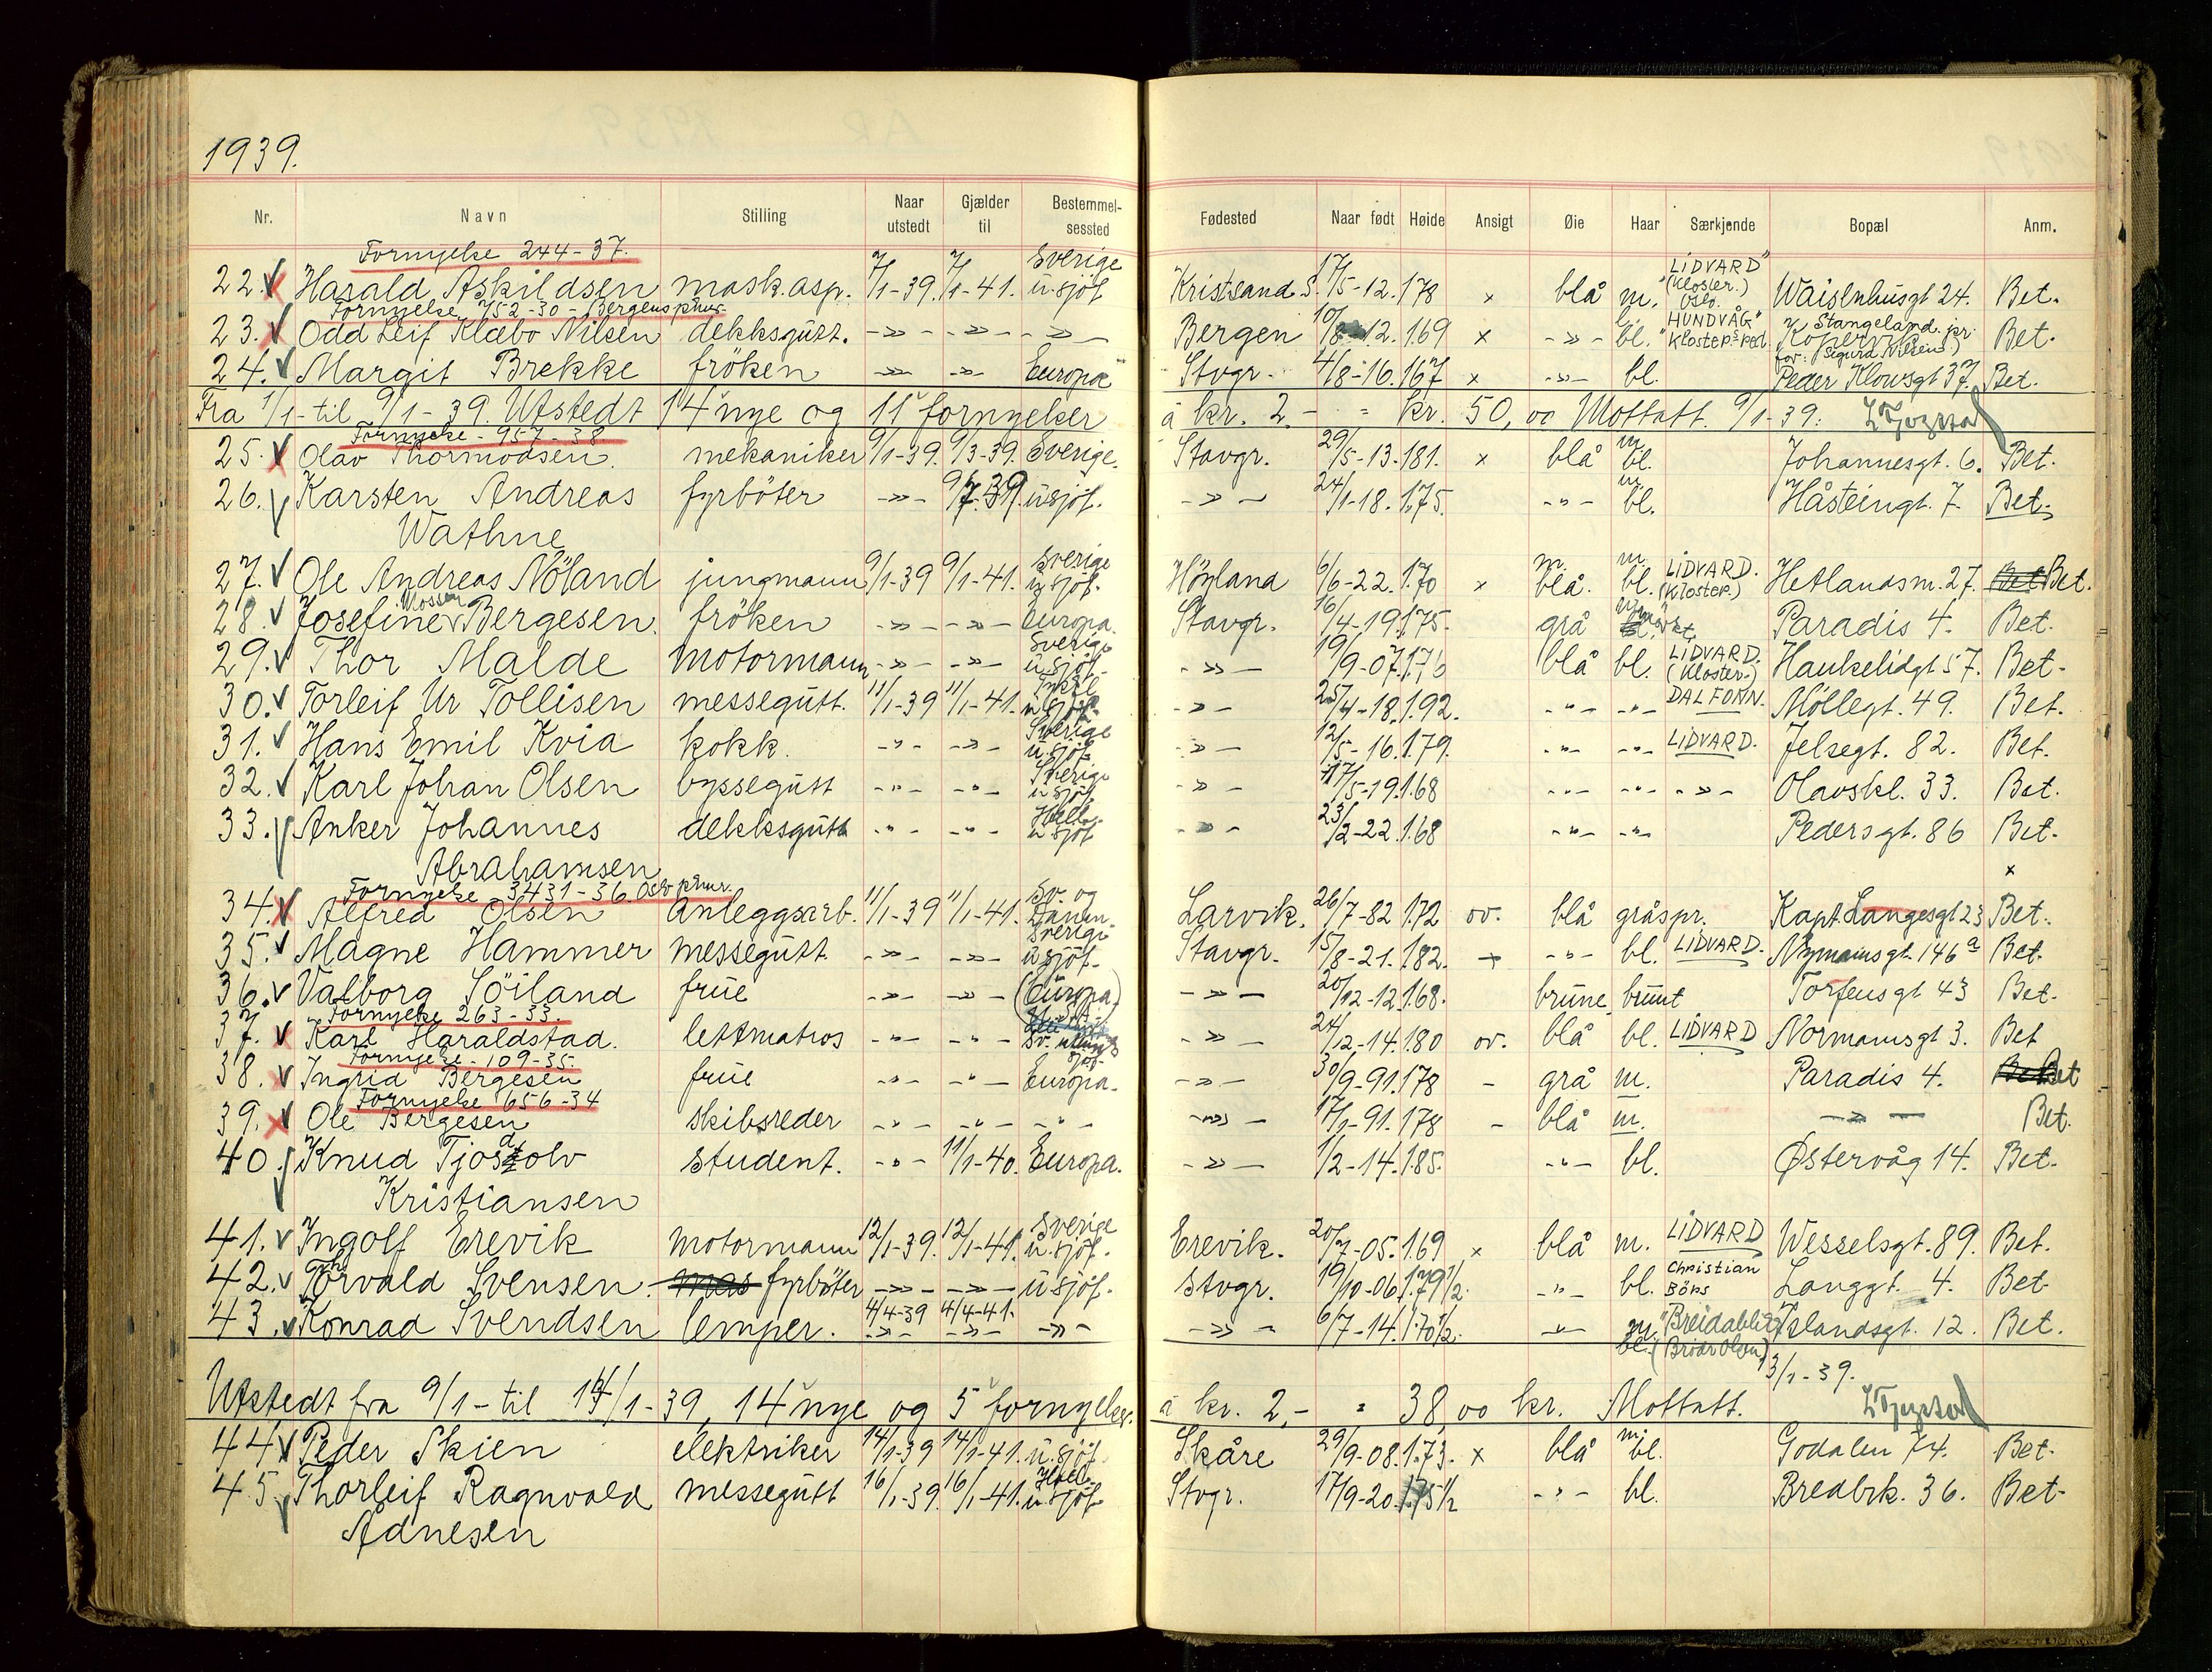 1939.
Nr. Navn Stilling Naar utstedt Gjælder til Bestemmelsessted Fødested Naar født Høide Ansigt Øie Haar Særkjende Bopæl Anm.
Fornyelse 244-37.
22. Harald Askildsen mask.asp. 7/1-39. 7/1-41. Sverige u.sjöf. Kristsand S. 17/5-12. 178 x blå m. "LIDVARD" (Kloster.) Oslo. Waisenhusgt 24. Bet.
Fornyelse 752-30 - Bergens pkmr.
23. Odd Leif Klæbo Nilsen dekksgutt. -»- -»- -»- Bergen 10/8-12. 169 x -»- bl. "HUNDVÅG" Klosters red. Stangeland. pr. Kopervik for: (Sigurd Nilsen) Bet.
24. Margit Brekke fröken -»- -»- Europa Stvgr. 4/8-16. 167 x -»- bl. Peder Klowsgt 37. Bet.
Fra 1/1- til 9/1-39. Utstedt 14 nye og 11 fornyelser à kr. 2.- = kr. 50,00 Mottatt. 9/1-39.
Fornyelse - 957-38
25. Olav Thormodsen. mekaniker 9/1-39. 9/3-39. Sverige. Stavgr. 29/5-13. 181. x blå m. bl. Johannesgt. 6. Bet.
26. Karsten Andreas fyrböter -»- 9/7.39. u.sjöf. -»- 24/1-18. 1.75. -"- m. bl. Håsteingt. 7. Bet.
Wathne
27. Ole Andreas Nöland jungmann 9/1-39 9/1-41. Sverige u. sjöf. Höyland 6/6-22. 1.70 x m. blå. m. bl. LIDVARD. (Kloster.) Hetlandsm. 27. Bet Bet.
28. Josefine Mosser Bergesen. fröken -»- -»- Europa. Stavgr. 16/4-19. 1.75. grå mörkt. Paradis 4. Bet.
29. Thor Malde motormann -»- -»- Sverige u.sjöf. -»- 19/9-07. 1.76 blå bl. LIDVARD. (Kloster.) Haukelidgt 57. Bet-
30. Torleif Ur Tollisen messegutt. 11/1-39 11/1-41. u.sjöf. -»- 25/4-18. 1.92. -"- -"- DALFONN. Möllegt. 49. Bet.
31. Hans Emil Kvia kokk. -"- -»- Sverige u.sjöf. -»- 12/5-16. 1.79. -"- -"- LIDVARD. Jelsegt. 82. Bet.
32. Karl Johan Olsen byssegutt -"- -"- Sverige u.sjöf. -»- 17/5-19. 1.68 -"- -"- -»- Olavskl. 33. Bet.
33. Anker Johannes dekksgutt -"- -"- Holl. u.sjöf -»- 23/2-22. 1.68 -"- -"- Pedersgt. 86 Bet-
Abrahamsen x
Fornyelse 3431-36 Oslo pkmr.
34. Alfred Olsen anleggsarb. 11/1-39 11/1-41. Sv. og Danm. Larvik. 26/7-82 1.72 ov. blå gråspr. Kapt. Langesgt 23 Bet.
35. Magne Hammer messegutt. -»- -»- Sverige u.sjöf. Stavgr. 15/8-21. 1.82. x -"- bl. LIDVARD. Nymansgt. 146 a Bet.
36. Valborg Söiland frue -»- -»- (Europa) -»- 20/12-12. 1.68. brune brunt Torfeusgt 43 Bet-
Fornyelse 263-33.
37. Karl Haraldstad. lettmatros -"- -"- -»- 24/12-14. 180 ov. blå bl. LIDVARD Normannsgt 3. Bet
Fornyelse - 109-35.
38. Ingrid Bergesen frue -"- -"- Europa. -»- 30/9-91. 178 - grå m. Paradis 4. Bet
Fornyelse 656-34
39. Ole Bergesen skibsreder -"- -"- -"- -»- 17/1-91. 178 - blå m. -»- Bet.
40. Knud Tjostolv student. -"- 11/1-40. Europa. -»- 1/2-14. 1.85. -"- bl. Østervåg 14. Bet-
Kristiansen
41. Ingolf Erevik motormann 12/1-39. 12/1-41. Sverige u.sjöf. Erevik. 20/7-05. 1.69 x blå m. LIDVARD Wesselsgt. 89. Bet.
42. Thorvald Svensen. mas fyrböter -»- -»- u.sjöf. Stvgr. 19/10-06. 1.79 1/2. -"- bl. Christian Börs Langgt. 4. Bet
43. Konrad Svendsen lemper. 4/4-39 4/4-41. -»- -»- -»- -»- 6/7-14. 1.70 1/2. -"- m. bl. "Breidablik" (Brödr Olsen) Islandsgt. 12. Bet.
13/1-39.
Utstedt fra 9/1- til 14/1-39, 14 nye og 5 fornyelser. à kr. 2,- = 38,00 kr. Mottatt.
44. Peder Skien elektriker 14/1-39 14/1-41. u.sjöf. Skåre 29/9-08. 1.73. x blå m. bl. Godalen 74. Bet-
45. Thorleif Ragnvald messegutt 16/1-39. 16/1-41. Holl. u.sjöf. Stvgr. 17/9-20. 1.75 1/2 -"- bl. Bredbrk. 36. Bet-
Adnesen